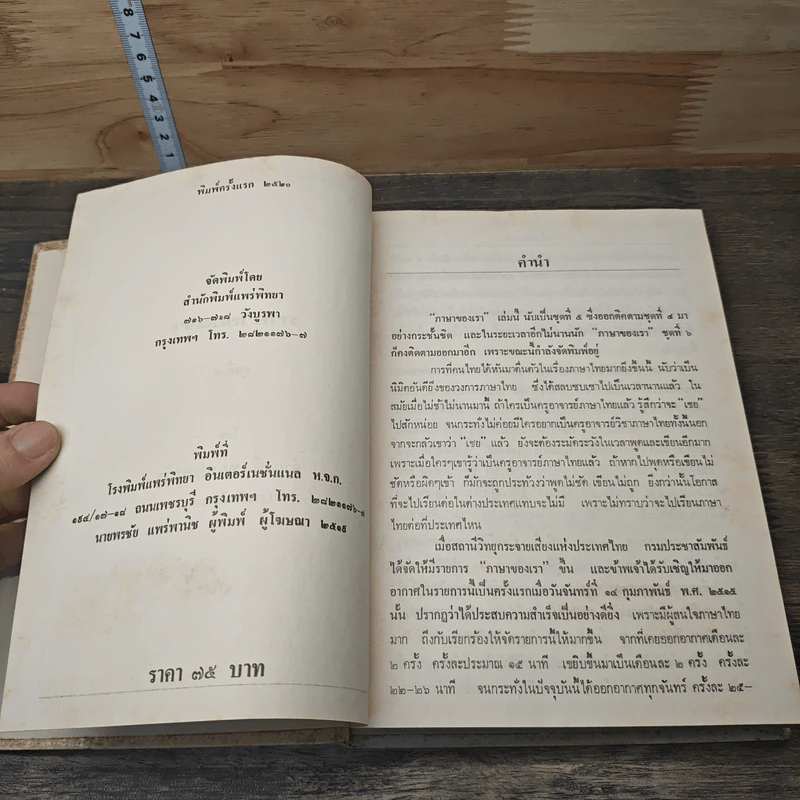 8
7
6
5
4
3
2
1
พิมพ์ครั้งแรก ๒๕๒๐
จัดพิมพ์โดย
สำนักพิมพ์แพร่พิทยา
๗๑๖-๗๑๘ วังบูรพา
กรุงเทพฯ โทร. ๒๘๒๑๑๗๖-๗
พิมพ์ที่
โรงพิมพ์แพร่พิทยา อินเตอร์เนชั่นแนล ห.จ.ก.
๑๙๔/๑๗-๑๘ ถนนเพชรบุรี กรุงเทพฯ โทร. ๒๘๒๑๑๗๖-๘
นายพรชัย แพร่พานิช ผู้พิมพ์ ผู้โฆษณา ๒๕๑๙
ราคา ๗๕ บาท
คำนำ
"ภาษาของเรา" เล่มนี้ นับเป็นชุดที่ ๕ ซึ่งออกติดตามชุดที่ ๔ มา
อย่างกระชั้นชิด และในระยะเวลาอีกไม่นานนัก "ภาษาของเรา" ชุดที่ ๖
ก็คงติดตามออกมาอีก เพราะขณะนี้กำลังจัดพิมพ์อยู่
การที่คนไทยได้หันมาตื่นตัวในเรื่องภาษาไทยมากยิ่งขึ้นนี้ นับว่าเป็น
นิมิตอันดียิ่งของวงการภาษาไทย ซึ่งได้สลบซบเซาไปเป็นเวลานานแล้ว ใน
สมัยเมื่อไม่ช้าไม่นานมานี้ ถ้าใครเป็นครูอาจารย์ภาษาไทยแล้ว รู้สึกว่าจะ "เชย"
ไปสักหน่อย จนกระทั่งไม่ค่อยมีใครอยากเป็นครูอาจารย์วิชาภาษาไทยทั้งนี้นอก
จากจะกลัวเขาว่า "เชย" แล้ว ยังจะต้องระมัดระวังในเวลาพูดและเขียนอีกมาก
เพราะเมื่อใครๆเขารู้ว่าเป็นครูอาจารย์ภาษาไทยแล้ว ถ้าหากไปพูดหรือเขียนไม่
ชัดหรือผิดๆเข้า ก็มักจะถูกประท้วงว่าพูดไม่ชัด เขียนไม่ถูก ยิ่งกว่านั้นโอกาส
ที่จะไปเรียนต่อในต่างประเทศแทบจะไม่มี เพราะไม่ทราบว่าจะไปเรียนภาษา
ไทยต่อที่ประเทศไหน
เมื่อสถานีวิทยุกระจายเสียงแห่งประเทศไทย กรมประชาสัมพันธ์
ได้จัดให้มีรายการ "ภาษาของเรา" ขึ้น และข้าพเจ้าได้รับเชิญให้มาออก
อากาศในรายการนี้เป็นครั้งแรกเมื่อวันจันทร์ที่ ๑๔ กุมภาพันธ์ พ.ศ. ๒๕๑๕
นั้น ปรากฏว่าได้ประสบความสำเร็จเป็นอย่างดียิ่ง เพราะมีผู้สนใจภาษาไทย
มาก ถึงกับเรียกร้องให้จัดรายการนี้ให้มากขึ้น จากที่เคยออกอากาศเดือนละ
๒ ครั้ง ครั้งละประมาณ ๑๕ นาที เขยิบขึ้นมาเป็นเดือนละ ๒ ครั้ง ครั้งละ
๒๒-๒๖ นาที จนกระทั่งในปัจจุบันนี้ได้ออกอากาศทุกจันทร์ ครั้งละ ๒๕-